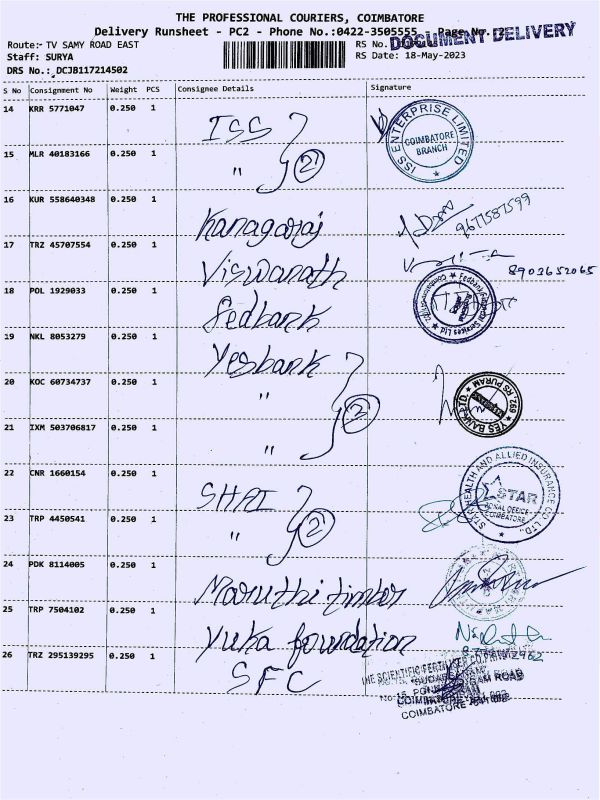 THE PROFESSIONAL COURIERS, COIMBATORE
Delivery Runsheet - PC2 - Phone No.:0422-3505555 Page No.
DOCUMENT DELIVERY
Route:- TV SAMY ROAD EAST RS No.
Staff: SURYA RS Date: 18-May-2023
DRS No.: DCJB117214502
S No Consignment No Weight PCS Consignee Details Signature
14 KRR 5771047 0.250 1 ISS
ISS ENTERPRISE LIMITED
COIMBATORE
BRANCH
15 MLR 40183166 0.250 1 " 2
16 KUR 558640348 0.250 1 Kanagaraj 9677587599
17 TRZ 45707554 0.250 1 Viswanath 8903652065
18 POL 1929033 0.250 1 Fedbank
19 NKL 8053279 0.250 1 Yesbank
20 KOC 60734737 0.250 1 "
YES BANK LTD. 692, RS PURAM
21 IXM 503706817 0.250 1 " 3
22 CNR 1660154 0.250 1 SHAI
STAR HEALTH AND ALLIED INSURANCE CO LTD.,
STAR
OFFICE
COIMBATORE
23 TRP 4450541 0.250 1 " 2
24 PDK 8114005 0.250 1 Maruthi timber
25 TRP 7504102 0.250 1 Yuka foundation
26 TRZ 295139295 0.250 1 SFC
THE SCIENTIFIC FERTILISER
ROAD
COIMBATORE